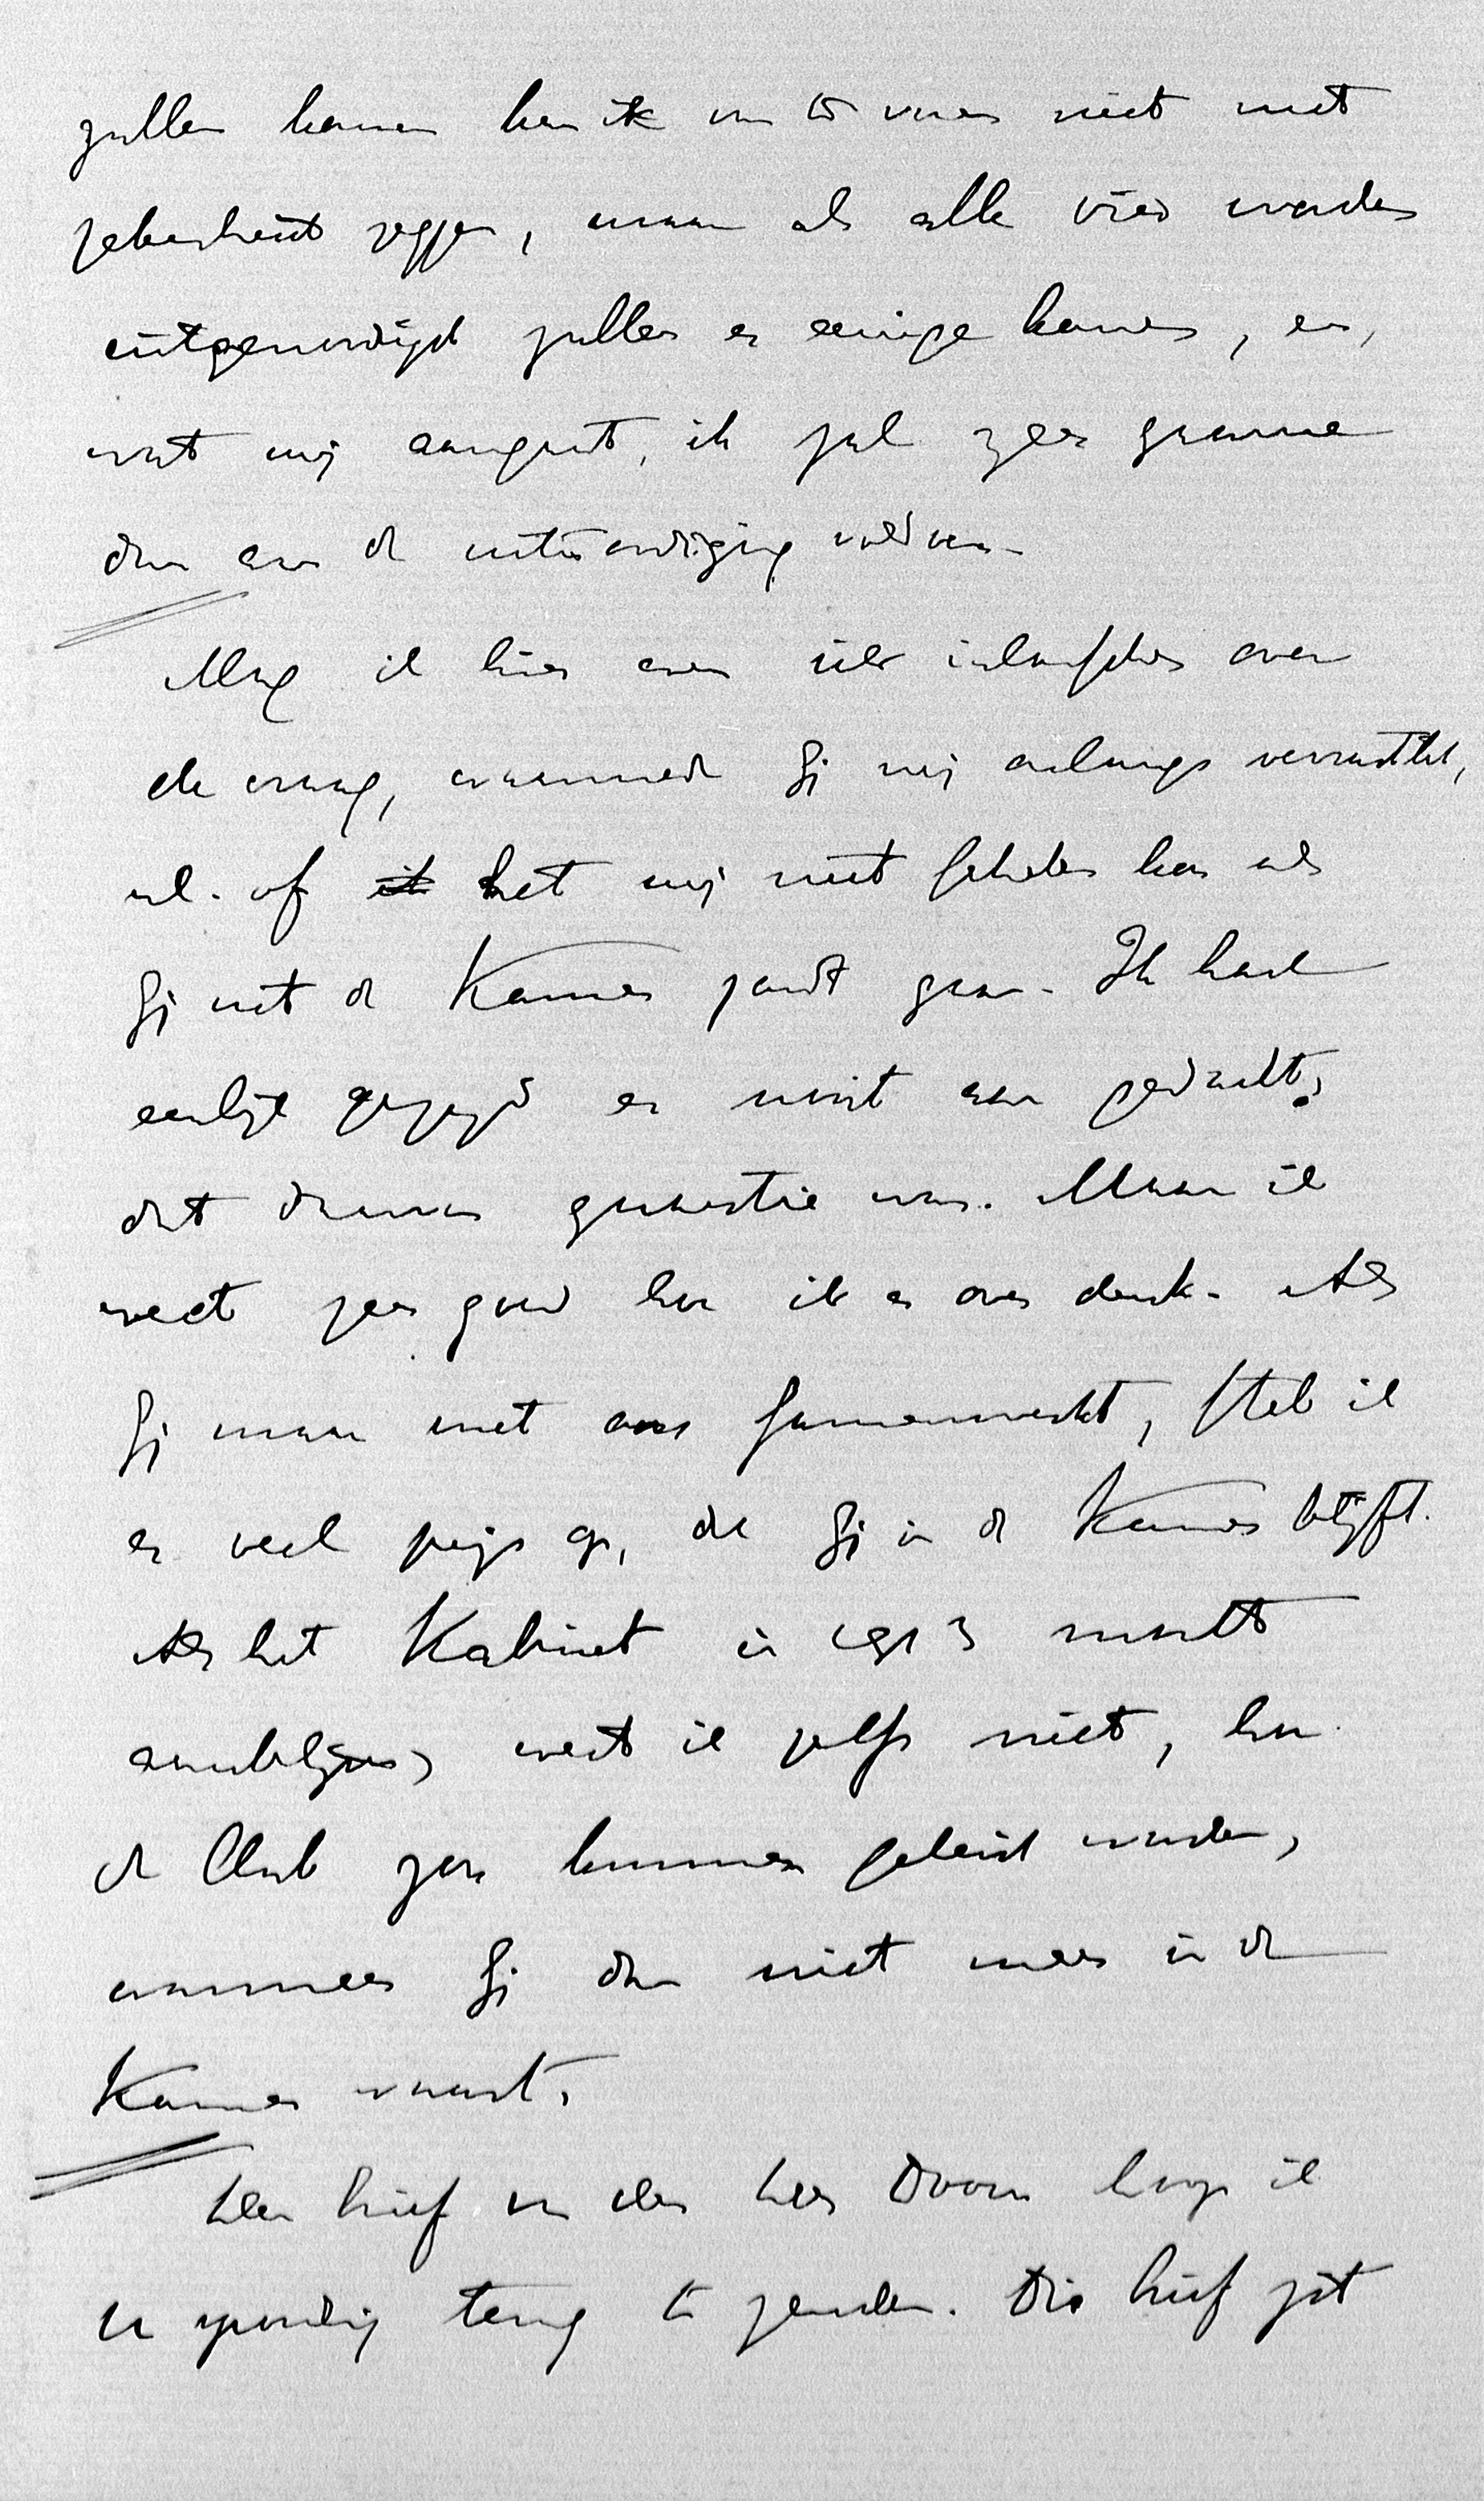 zullen komen kan ik van te voren niet met
zekerheid zeggen, maar als alle vier worden
uitgenoodigd zullen er eenige komen, en,
wat mij aangaat, ik zal zeer gaarne
dan aan de uitnoodiging voldoen.
Mag ik hier even iets inlasschen over
de vraag, waarmede Gij mij onlangs verrastet,
nl. of het mij niet schelen kon als
Gij uit de Kamer zoudt gaan. Ik had
eerlijk gezegd er nooit aan gedacht,
dat daarvan quaestie was. Maar ik
weet zeer goed hoe ik er over denk. Als
Gij maar met ons samenwerkt, stel ik
er veel prijs op, dat Gij in de Kamer blijft.
Als het Kabinet in 1913 mocht
aanblijven, weet ik zelfs niet, hoe
de Club zou kunnen geleid worden,
wanneer Gij dan niet meer in de
Kamer waart.
Den brief van den Heer Doorn hoop ik
U spoedig terug te zenden. Die brief zit